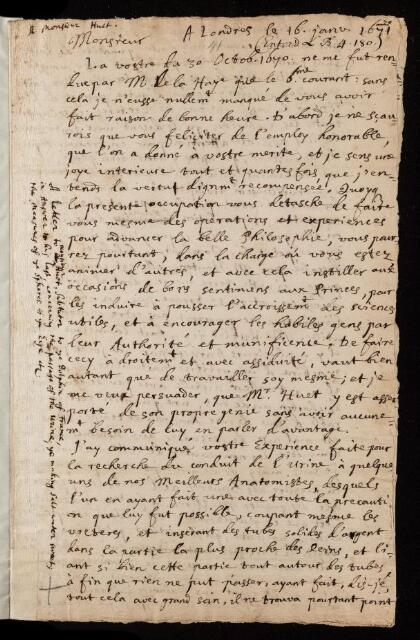 A Monsieur Huet.
A Londres le 16. janv. 1671
Monsieur (Entered L. B. 4. 180.)
La vostre du 30 Octob. 1670. ne me fut ren-
due par Mr de la Haye que le 6me courant: sans
cela je n'eusse nullemt manqué de vous avoir
fait raison de bonne heure. D'abord je ne sçau-
rois que vous feliciter de l'employ honorable,
que l'on a donné à vostre merite, et je sens une
joye interieure tout et quantes fois, que j'en-
tends la vertu dignmt recompensée. Quoyq
la presente occupation vous detasche de faire
vous mesme des operations et experiences
pour advancer la belle Philosophie, vous pour-
rez pourtant, dans la charge où vous estez
animer d'autres, et avec cela instiller aux
occasions de bons sentimens aux Princes, pour
les induire à pousser l'accroissemt des sciences
utiles, et à encourager les habiles gens par
leur Authorité et munificence. De faire
cecy à droitemt et avec assiduité, vaut bien
autant que de travailler soy mesme; et je
me veux persuader, que Mr Huet y est assez
porté de son propre genie sans avoir aucune-
mt besoin de luy en parler d'avantage.
J'ay communiqué vostre Experience faite pour
la recherche du conduit de l'Urine, à quelque
uns de nos Meilleurs Anatomistes, desquels
l'un en ayant fait une avec toute la precauti-
on que luy fut possible, coupant mesme les
ureteres, et inserant des tubes solides d'argent
dans la partie la plus proche des reins, et li-
ant si bien cette partie tout autour des tubes,
à fin que rien ne put passer, ayant fait, dis-je,
tout cela avec grand soin, il ne trouva pourtant point
A Letter to
Monsr Huet, to ye Dolphin of France,
in Answer to his last, concerning the passage of the Urine, ye making Salt-water sweet,
the measures of ye